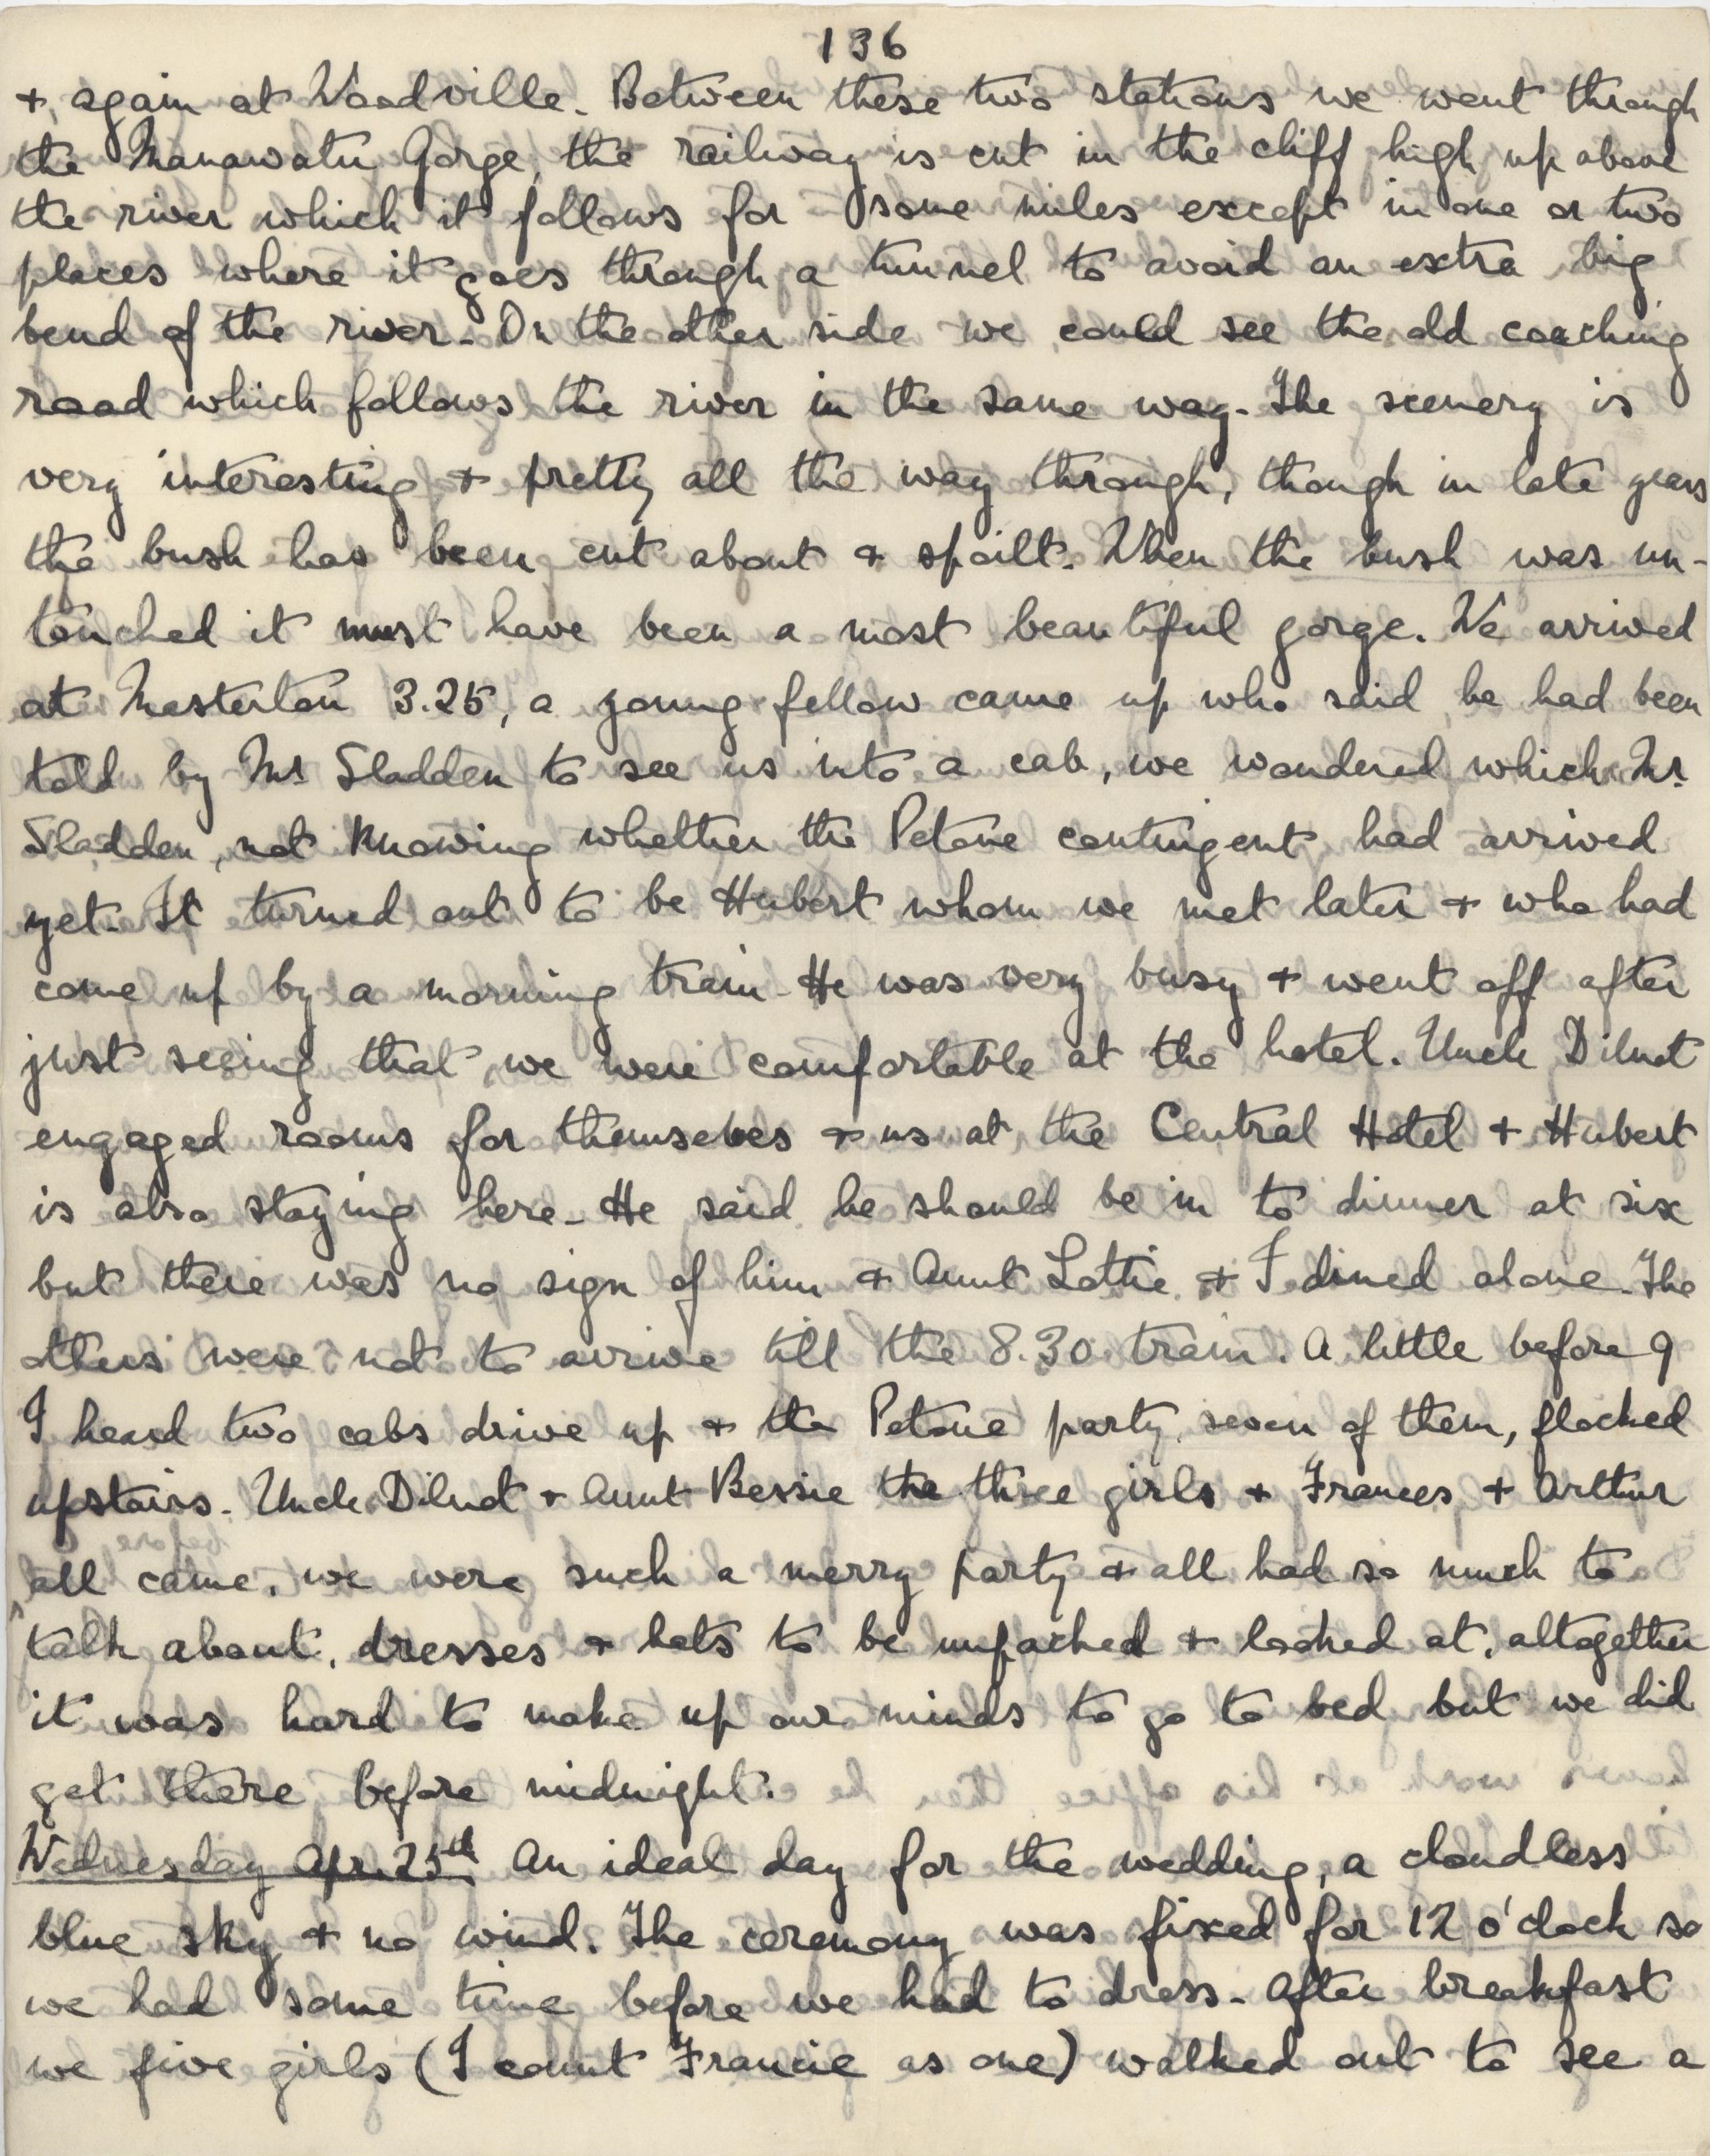 136
+ again at Woodville. Between these two stations we went through
the Manawatu Gorge, the railway is cut in the cliff high up above
the river which it follows for some miles except in one or two
places where it goes through a tunnel to avoid an extra big
bend of the river. On the other side we could see the old coaching
road which follows the river in the same way. The scenery is
very interesting + pretty all the way through, though in late years
the bush has been cut about + spoilt. When the bush was un-
touched it must have been a most beautiful gorge. We arrived
at Masterton 3.25, a young fellow came up who said he had been
told by Mr Sladden to see us into a cab, we wondered which Mr.
Sladden, not knowing whether the Petone contingent had arrived
yet. It turned out to be Hubert whom we met later + who had
come up by a morning train. He was very busy + went off after
just seeing that we were comfortable at the hotel. Uncle Dilnot
engaged rooms for themselves + us at the Central Hotel + Hubert
is also staying here. He said he should be in to dinner at six
but there was no sign of him + Aunt Lottie + I dined alone. The
others were not to arrive till the 8.30 train. A little before 9
I heard two cabs drive up + the Petone party, seven of them, flocked
upstairs. Uncle Dilnot + Aunt Bessie the three girls + Frances + Arthur
all came. we were such a merry party + all had so much to
talk about, dresses + hats to be unpacked + looked at, altogether
it was hard to make up our minds to go to bed but we did
get there before midnight.
Wednesday Apr. 25th An ideal day for the wedding, a cloudless
blue sky + no wind. The ceremony was fixed for 12 o'clock so
we had some time before we had to dress. After breakfast
we five girls (I count Francie as one) walked out to see a